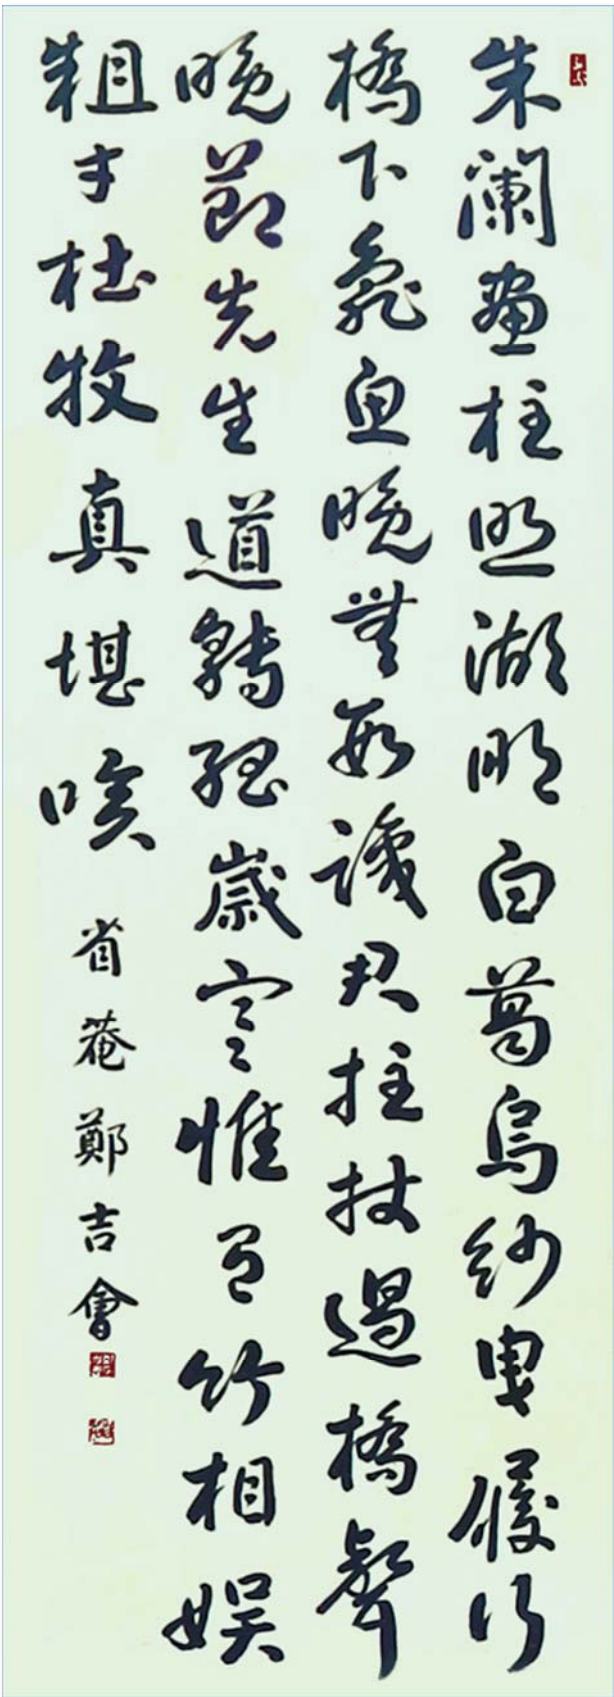 朱闌畫柱照湖明白葛烏紗曳履行
橋下龜魚晚無數識君拄杖過橋聲
晚節先生道轉孤歲寒惟有竹相娛
粗才杜牧真堪咲 省菴鄭吉會